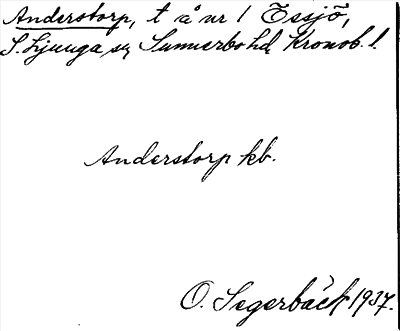 Anderstorp, t å nr 1 Essjö,
S. Ljunga sn, Sunnerbo hd, Kronob. l.
Anderstorp kb.
O. Segerbäck 1937.